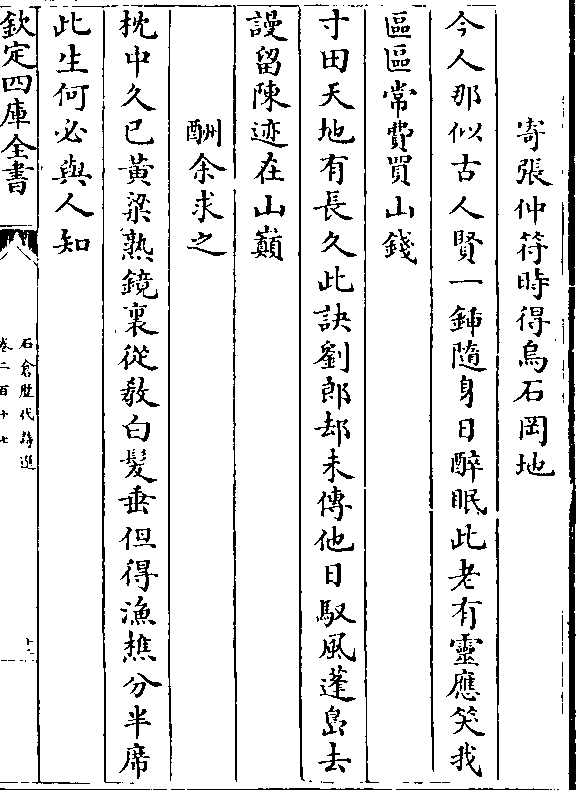 寄張仲符時得烏石岡地
今人那似古人賢一鍤隨身日醉眠此老有靈應笑我
區區常費買山錢
寸田天地有長久此訣劉郎却未傳他日馭風蓬島去
謾留陳迹在山巔
酬余求之
枕中久已黄粱熟鏡裏從教白髮垂但得漁樵分半席
此生何必與人知
欽定四庫全書
石倉歴代詩選
卷二百十七
十二